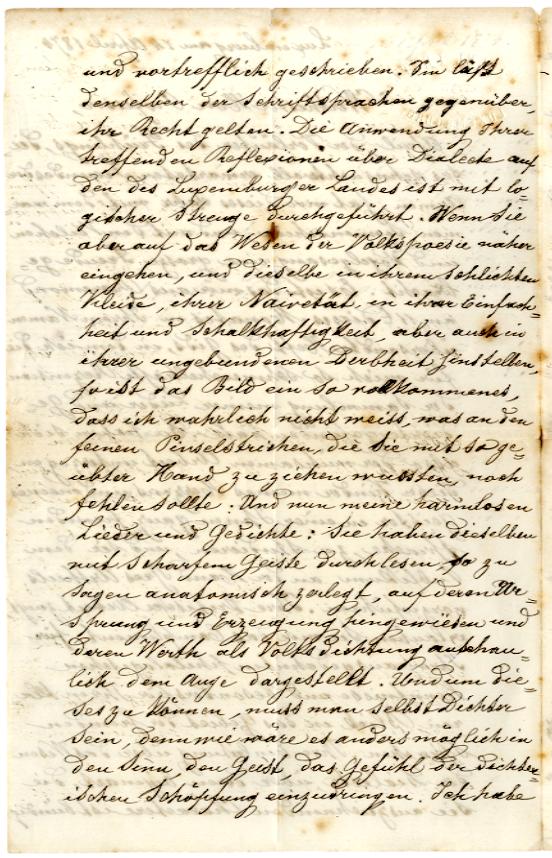 und vortrefflich geschrieben. Sie läßt
denselben der Schriftsprachen gegenüber,
ihr Recht gelten. Die Anwendung Ihrer
treffenden Reflexionen über Dialecte auf
den des Luxemburger Landes ist mit lo-
gischer Strenge durchgeführt. Wenn Sie
aber auf das Wesen der Volkspoesie näher
eingehen, und dieselbe in ihrem schlichten
Kleide, ihrer Naivetät, in ihrer Einfach-
heit und Schalkhaftigkeit, aber auch in
ihrer ungebundenen Derbheit hinstellen,
so ist das Bild ein so vollkommenes,
dass ich wahrlich nicht weiss, was an den
feinen Pinselstrichen, die Sie mit so ge-
übter Hand zu ziehen wussten, noch
fehlen sollte. Und nun meine harmlosen
Lieder und Gedichte: Sie haben dieselben
mit scharfem Geiste durchlesen, so zu
sagen anatomisch zerlegt, auf deren Ur-
sprung und Erzeugung hingewiesen und
deren Werth als Volksdichtung anschau-
lich dem Auge dargestellt. Und um die-
ses zu können, muss man selbst Dichter
sein, denn wie wäre es anders möglich in
den Sinn, den Geist, das Gefühl der dichter-
ischen Schöpfung einzudringen. Ich habe